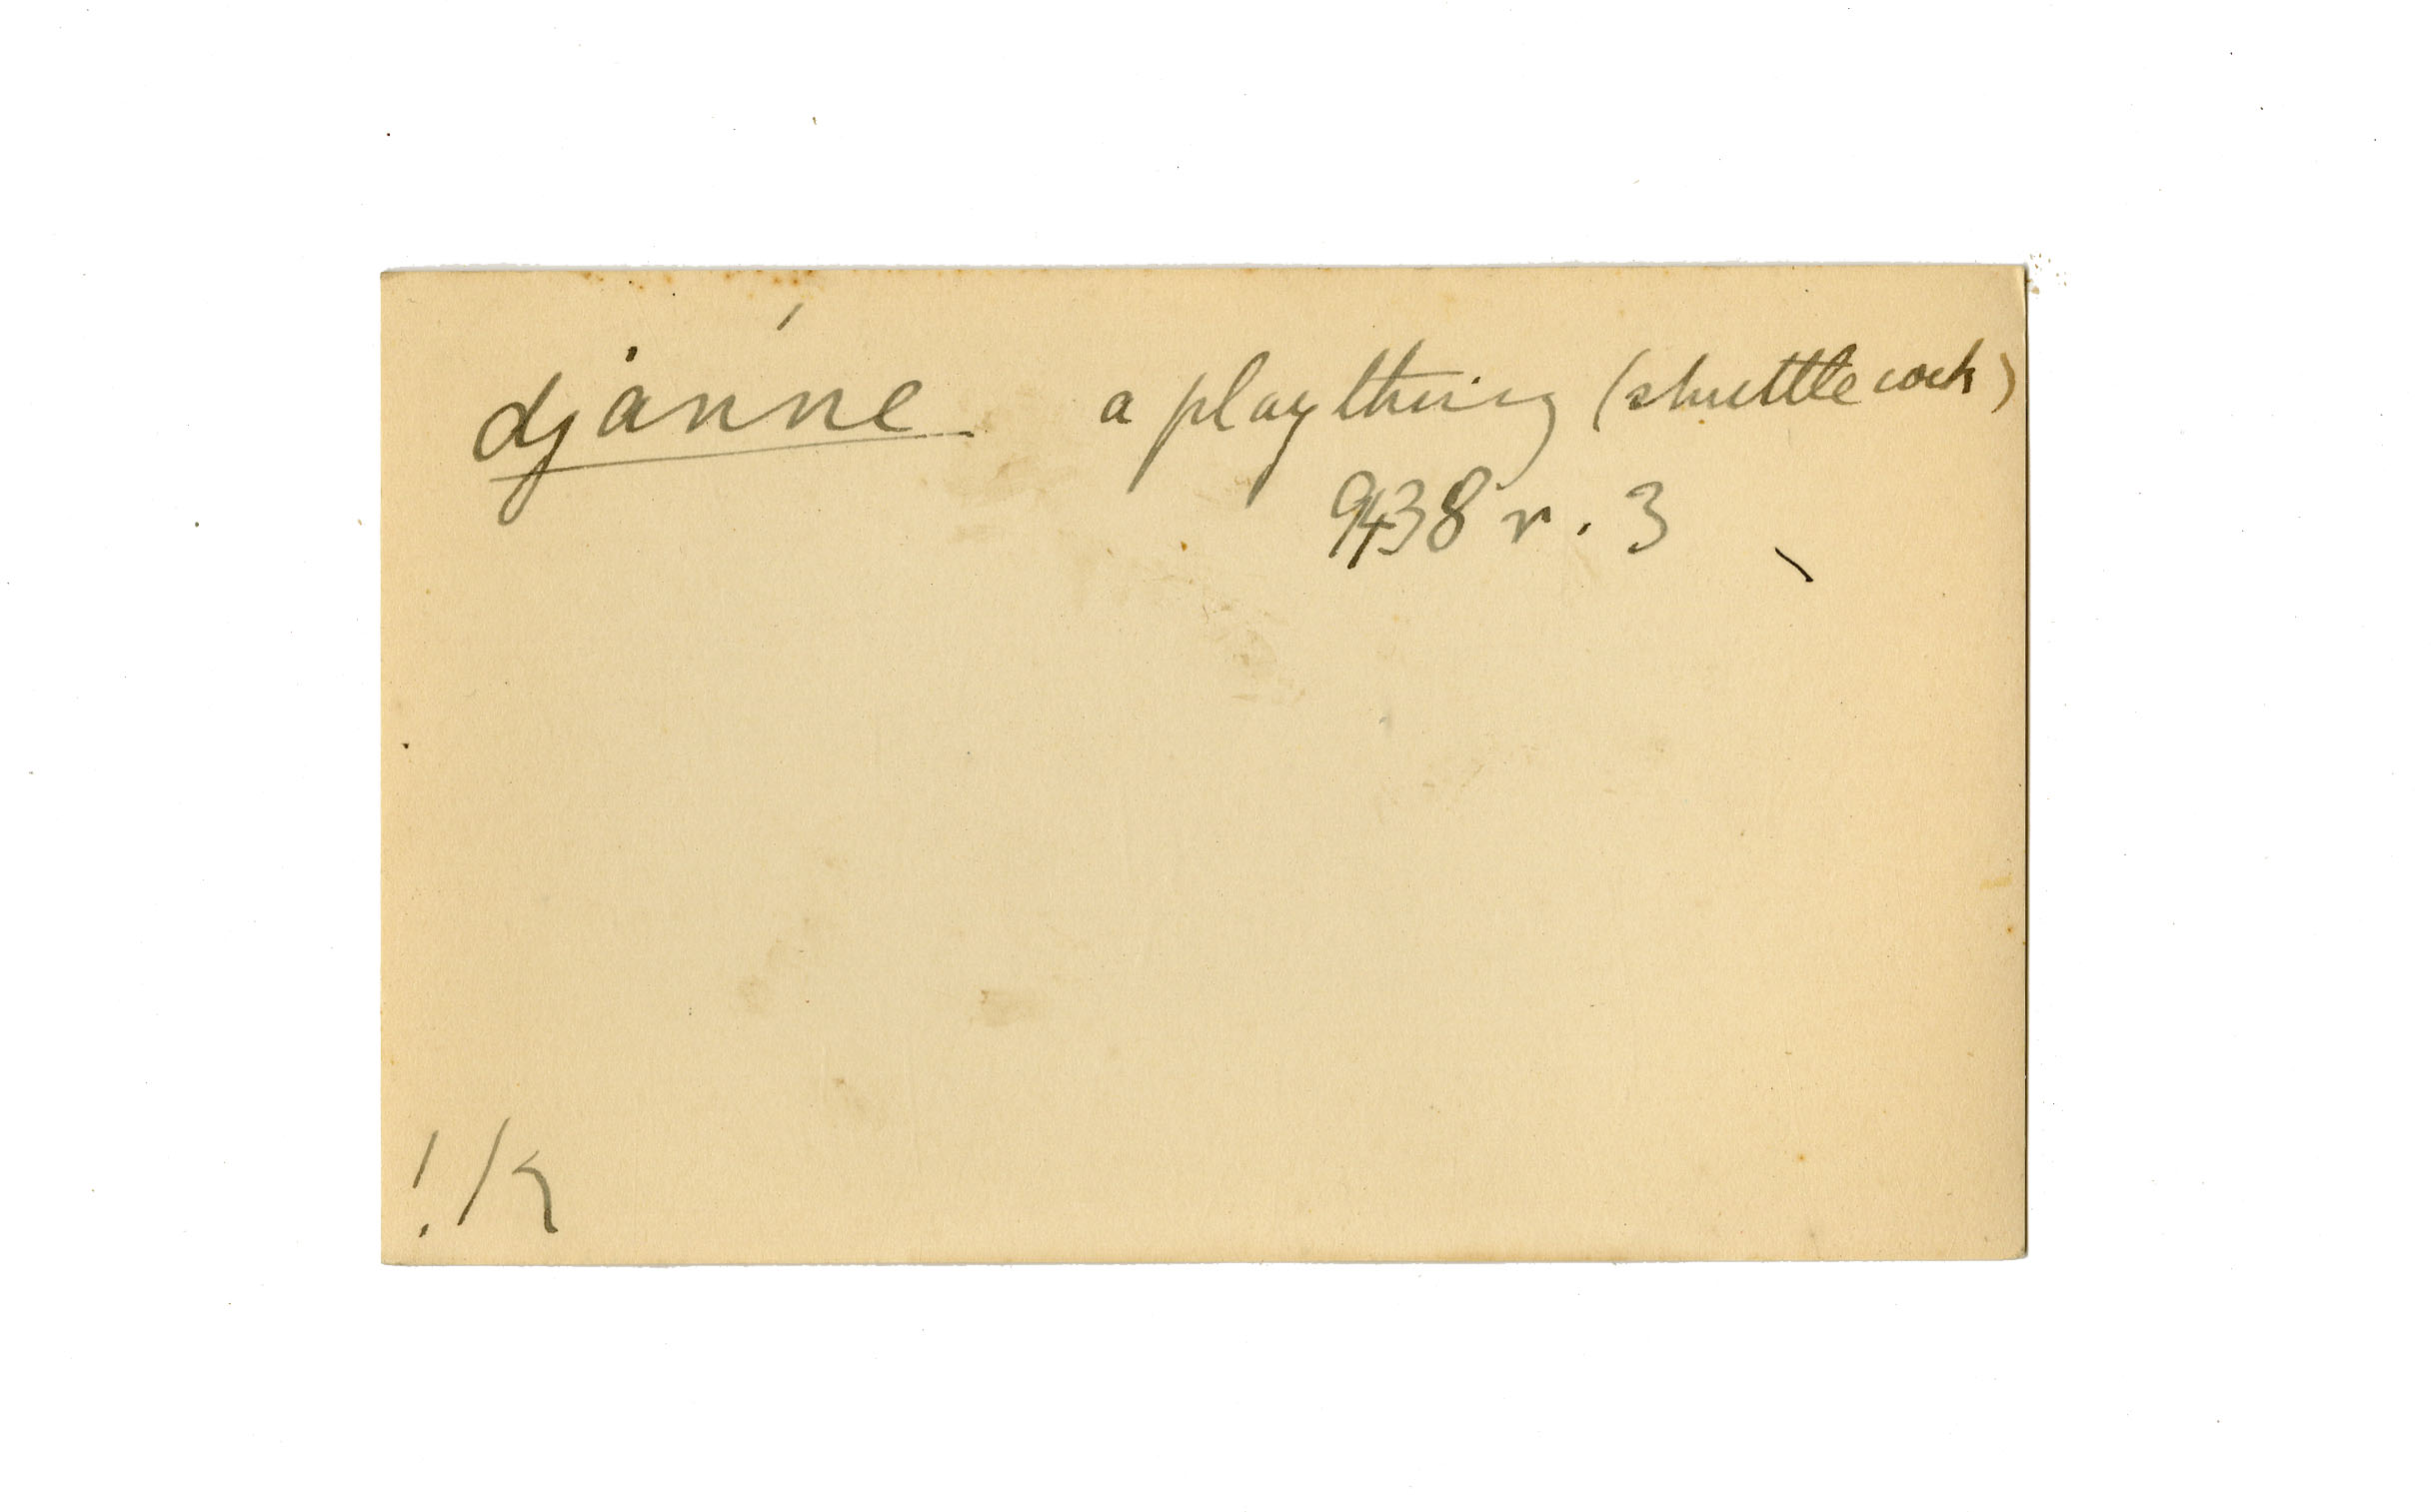 djánne a plaything (shuttlecock)
9438 r. 3
! K